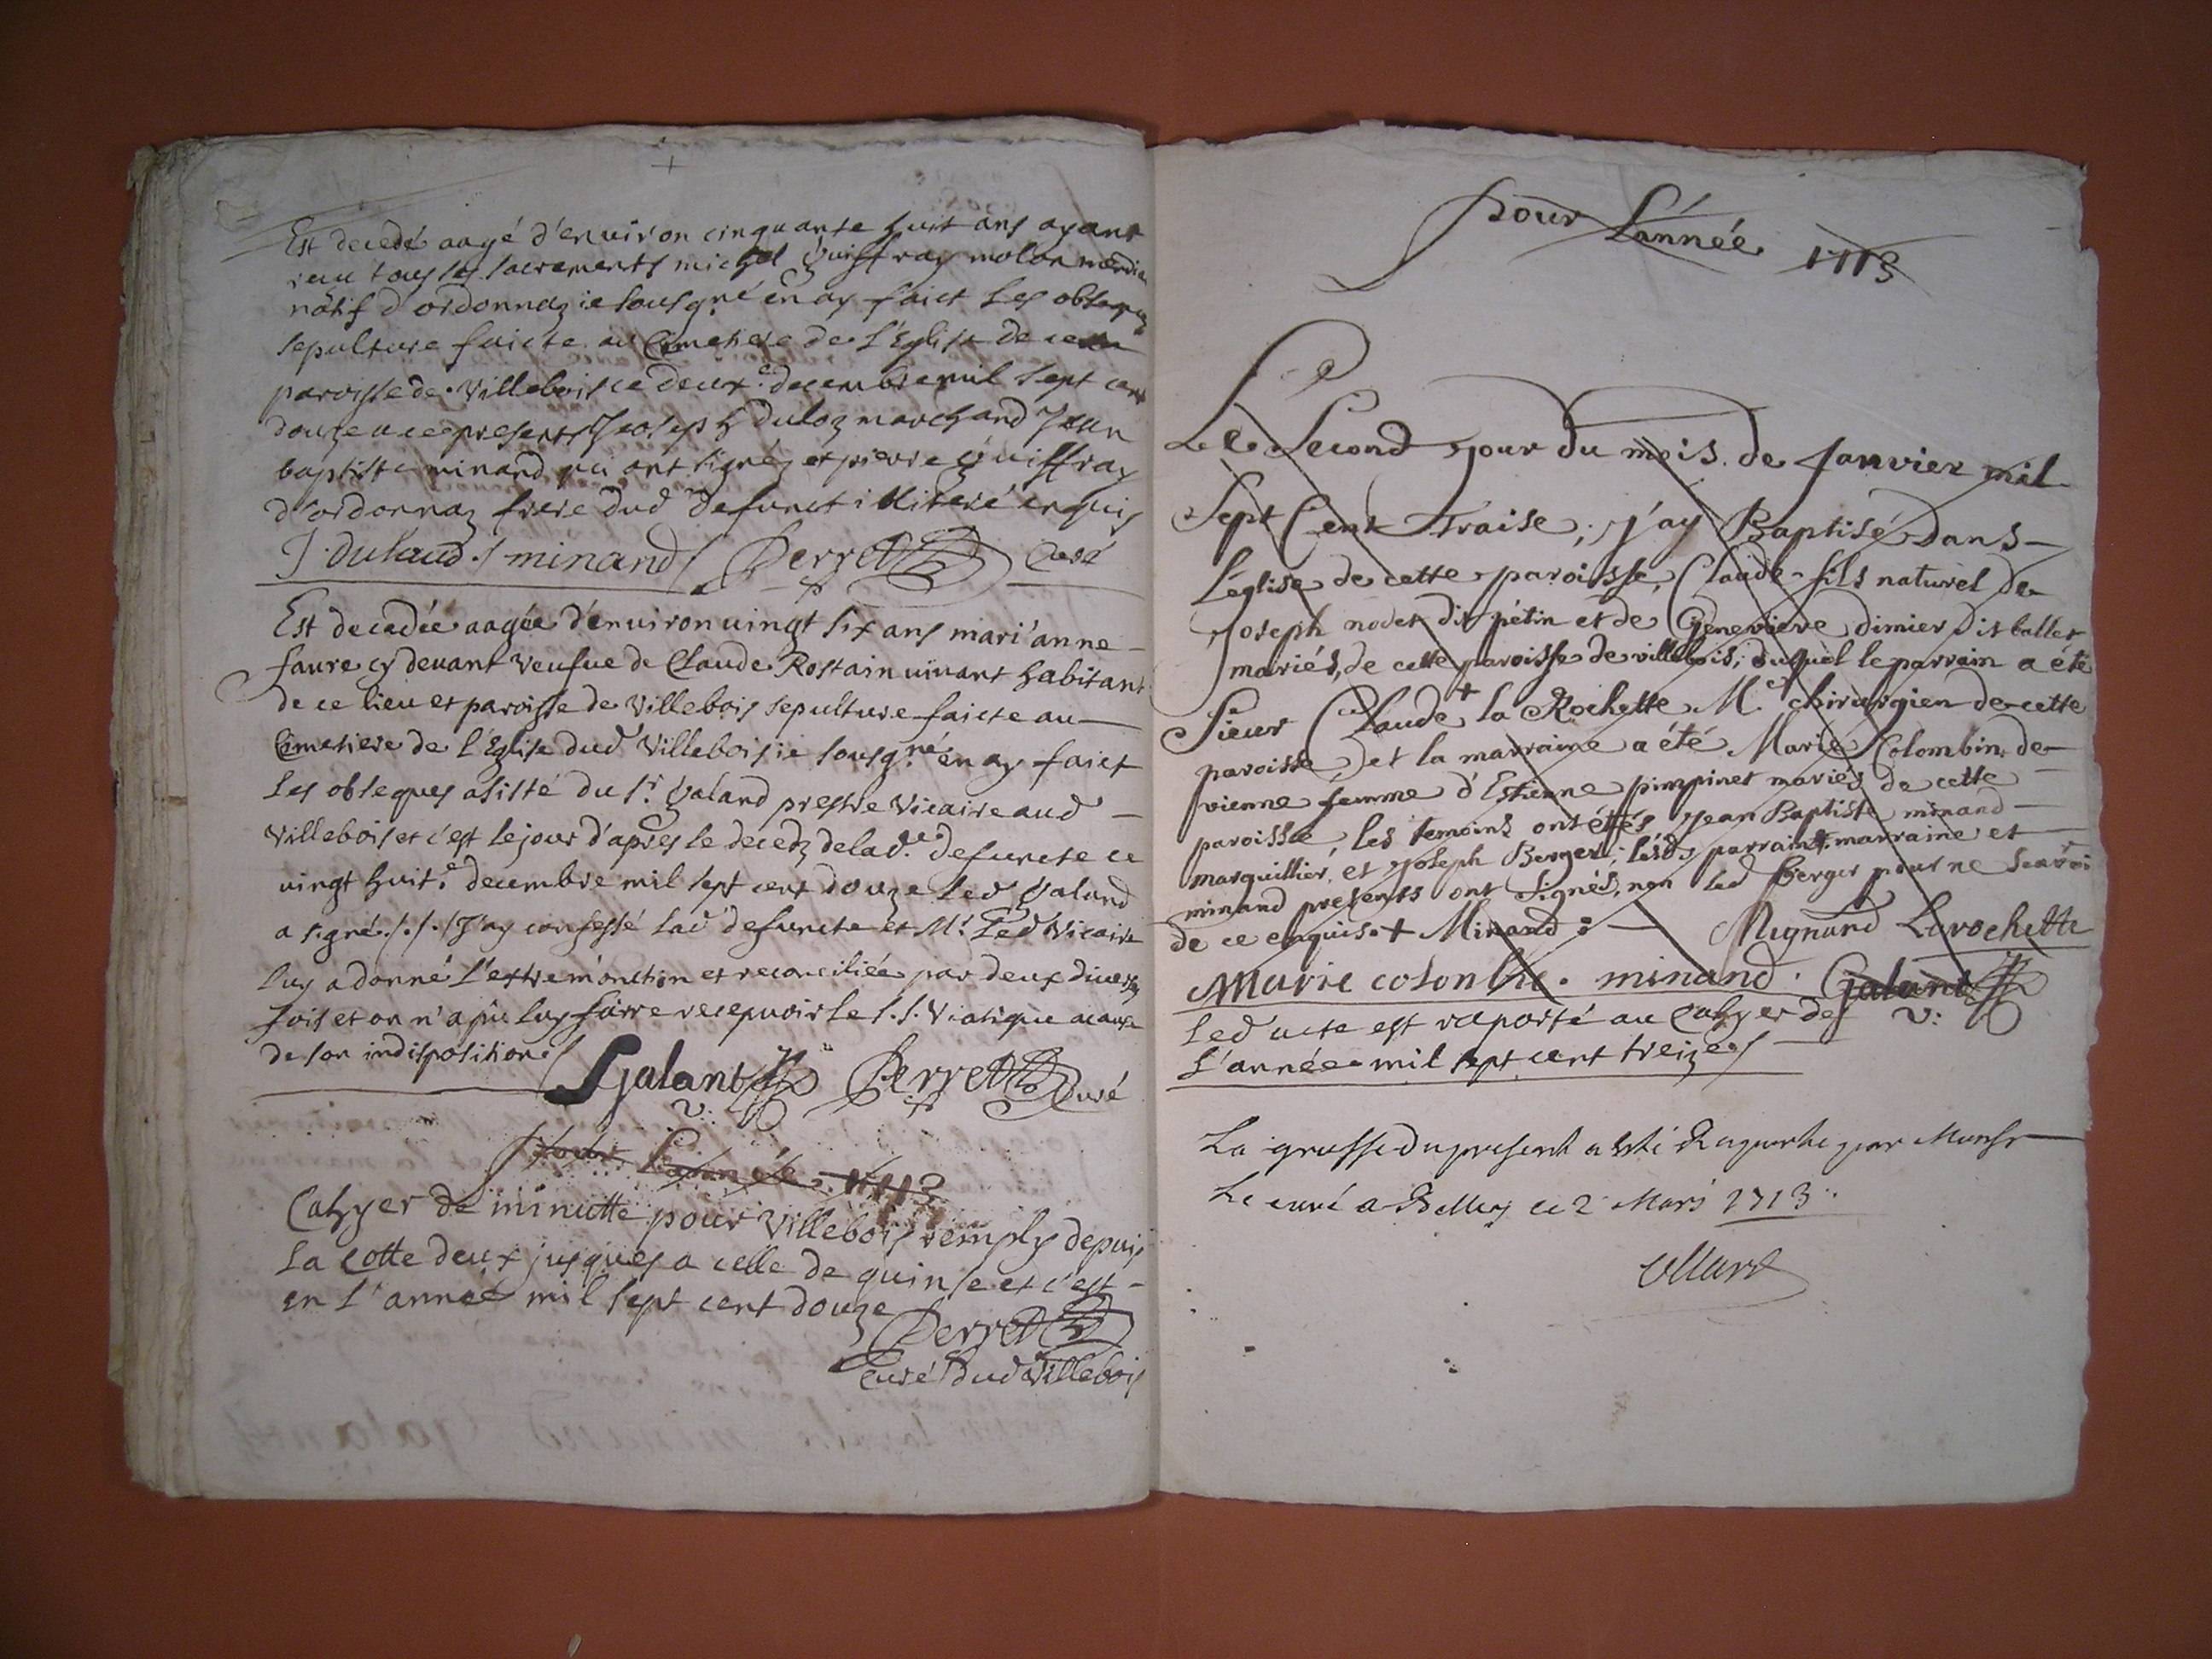 Est decedé aagé d'environ cinquante huit ans ayant
reçu tous les sacrements michel Guiffray molon
natif d'ordonnaz ie sousgné en ay faict les obseques
sepulture faicte au Cimetiere de l'Eglise de
paroisse de Villebois ce deuxe decembre mil sept cent
douze a ce presents Joseph duloz marchand Jean
baptiste minand qui ont signéz et pierre Guiffray
d'ordonnaz frere dud defunct illiteré enquis
J. dulaud / minand / Perret Curé
Est decedée aagée d'environ vingt six ans mari'anne
faure cy devant veufue de Claude Rostain vivant habitant
de ce lieu et paroisse de Villebois sepulture faicte au
Cimetiere de l'Eglise dud Villebois ie sousgné en ay faict
les obseques asisté du sr Galand prestre Vicaire aud
Villebois et c'est le jour d'apres le decedz de lade defuncte ce
vingt huite decembre mil sept cent douze led Galand
a signé ./. /. J'ay confessé lad defuncte et Mr led Vicaire
luy a donné l'extremonction et reconciliée par deux diverses
fois et on n'a pû luy faire recepvoir le S. S. Viatique a cause
de son indisposition /
Galant v: Perret Curé
Pour L'année 1713
Cahyer de minutte pour Villebois remply depuis
la cotte deux jusques a celle de quinse et c'est
en l'année mil sept cent douze
Perret
Curé dud Villebois
pour L'année 1713
Le Second jour du mois de Janvier mil
Sept Cent Traise, j'ay Baptisé dans
l'église de cette paroisse, Claude fils naturel de
Joseph nodet dit pétin et de Genevieve dimier dit ballet
mariés, de cette paroisse de villebois, duquel le parrain a été
Sieur Claude + la Rochette Me chirurgien de cette
paroisse, et la marraine a été Marie Colombin de
vienne femme d'Estienne pimpinet mariés de cette
paroisse, les temoins ont étés jean Baptiste minand
marguillier, et joseph Berger; lesds parrain, marraine et
minand presents ont signés, non led Berger pour ne scavoir
de ce enquis. + Minand : Mignand Larochette
Marie colonbie. minand. Galant v:
led'acte est raporté au Cahyer de
l'année mil sept cent treize /
La grosse du present a esté Raportée par Monsr
Le curé a Belley ce 2 Mars 1713